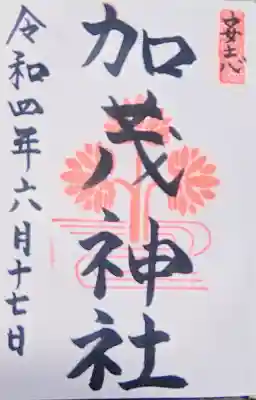 加茂神社
令和四年六月十七日